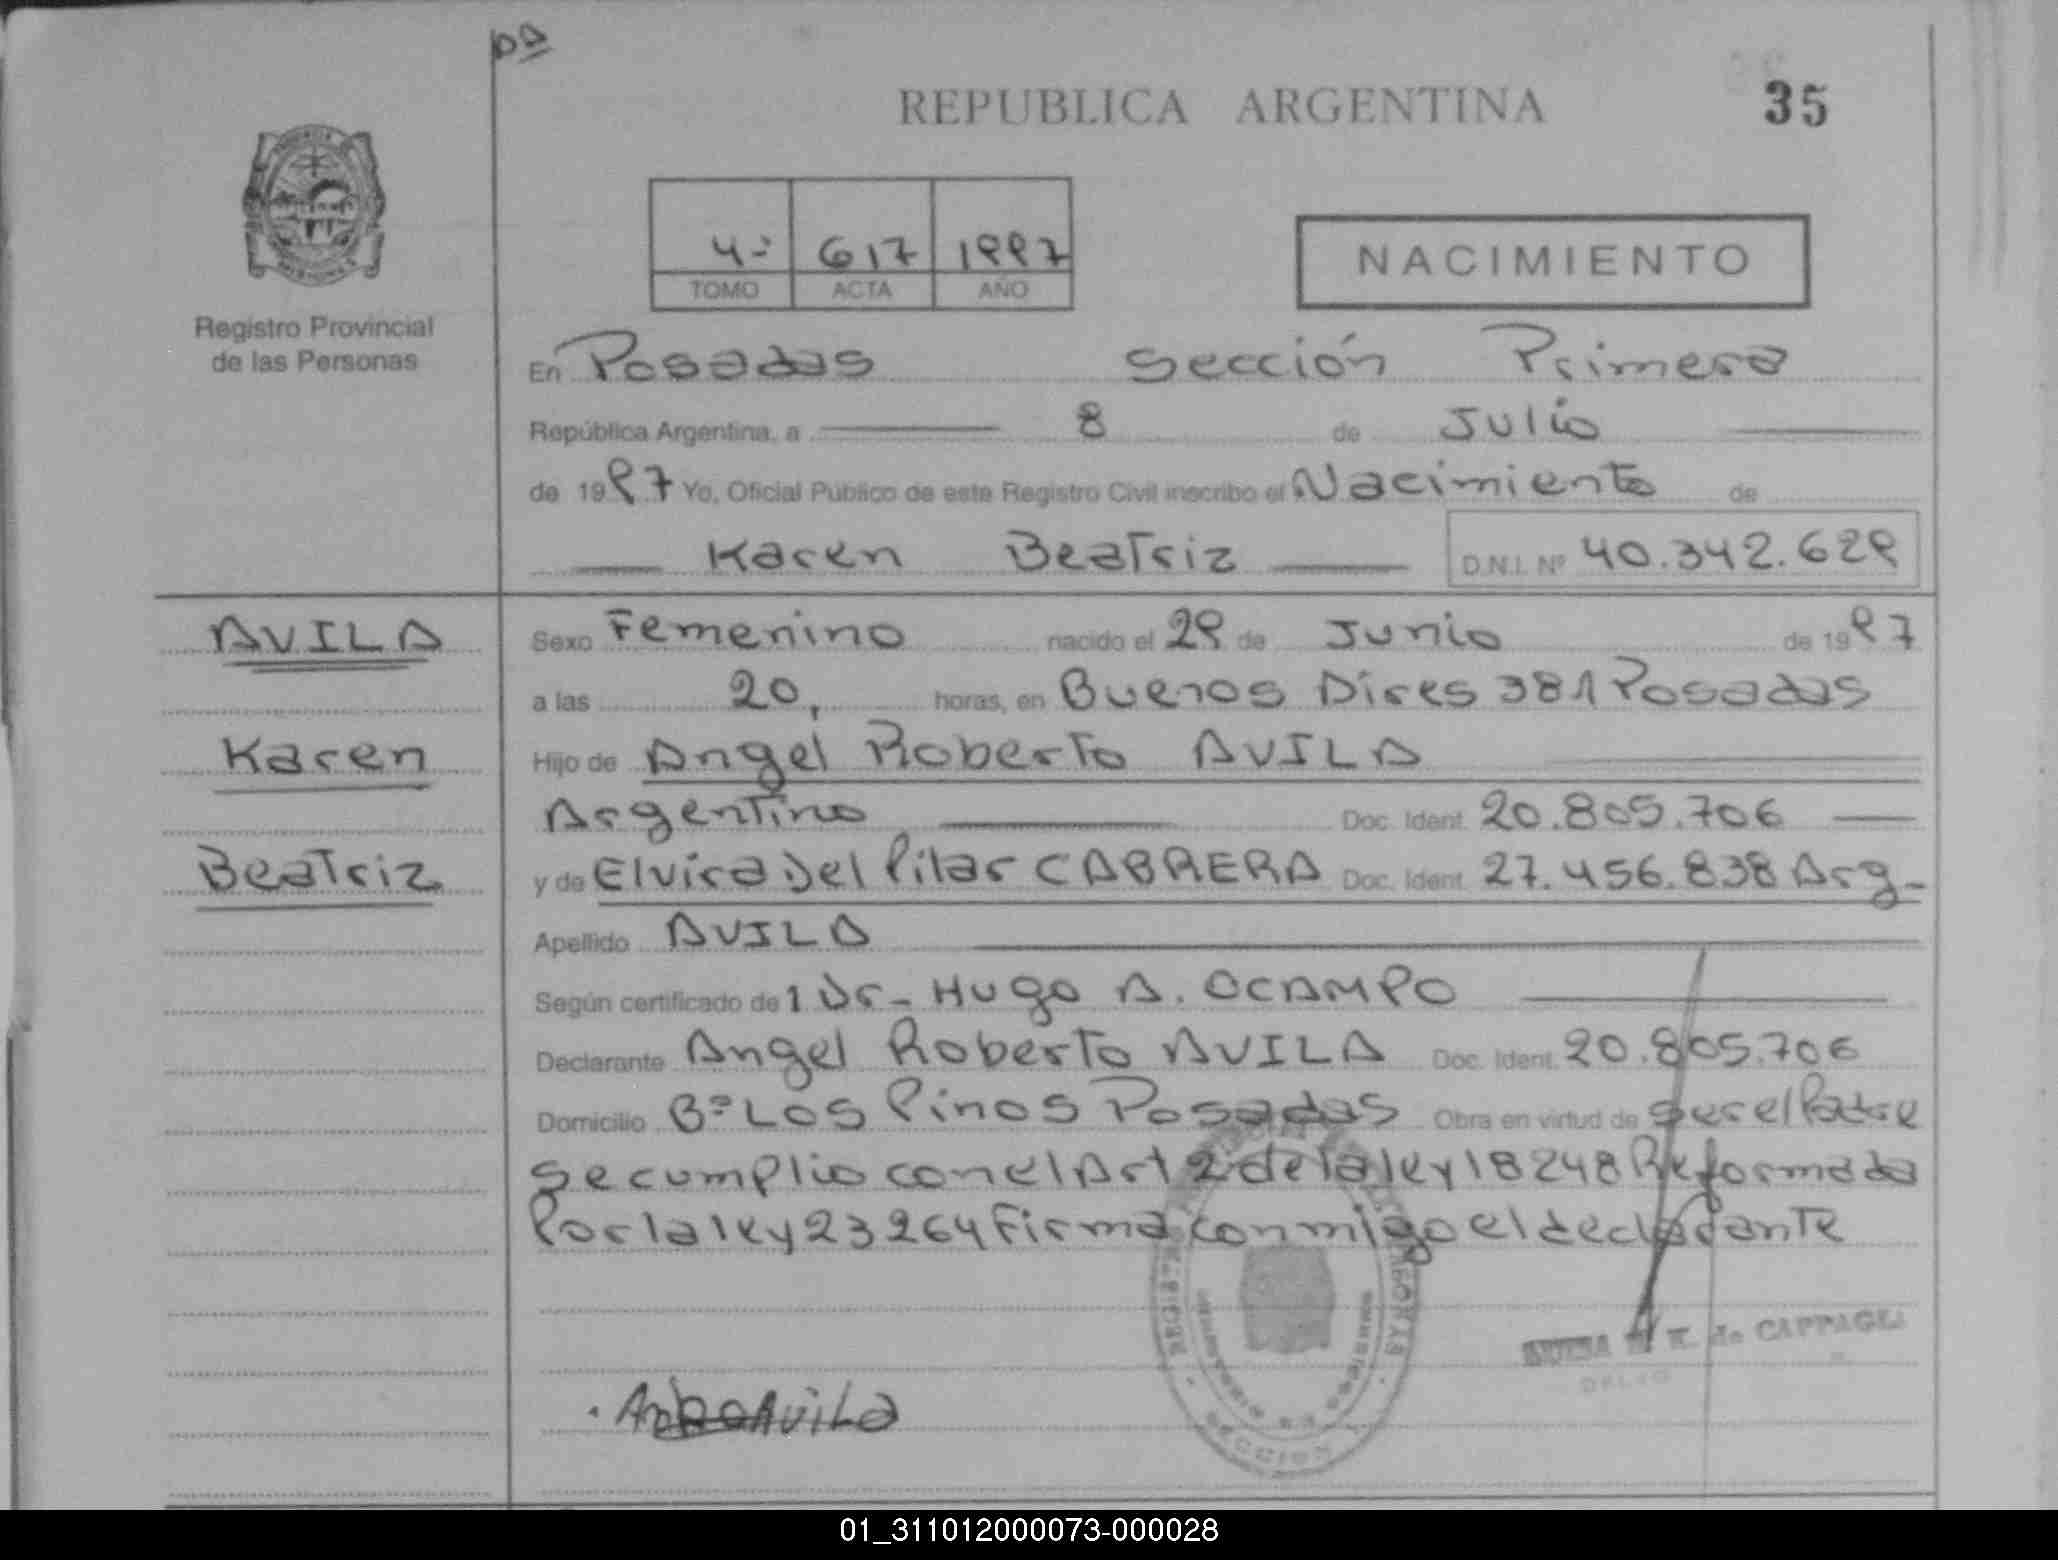 REPUBLICA ARGENTINA
35
4º 617 1997
TOMO ACTA AÑO
NACIMIENTO
Registro Provincial
de las Personas
En Posadas Sección Primera
República Argentina, a 8 de Julio
de 1997 Yo, Oficial Público de este Registro Civil inscribo el Nacimiento de
Karen Beatriz D.N.I. Nº 40.342.629
AVILA
Karen
Beatriz
Sexo Femenino nacido el 29 de Junio de 1997
a las 20, horas, en Buenos Aires 381 Posadas
Hijo de Angel Roberto AVILA
Argentino Doc. Ident. 20.805.706
y de Elvira Del Pilar CABRERA Doc. Ident. 27.456.838 Arg-
Apellido AVILA
Según certificado de 1 Dr- Hugo A. OCAMPO
Declarante Angel Roberto AVILA Doc. Ident. 20.805.706
Domicilio Bº Los Pinos Posadas Obra en virtud de ser el Padre
se cumplio con el Art 2 de la ley 18248 Reformada
Por la ley 23264 Firma conmigo el declarante
de CAPPAGLI
Avila
SECCION
01_311012000073-000028